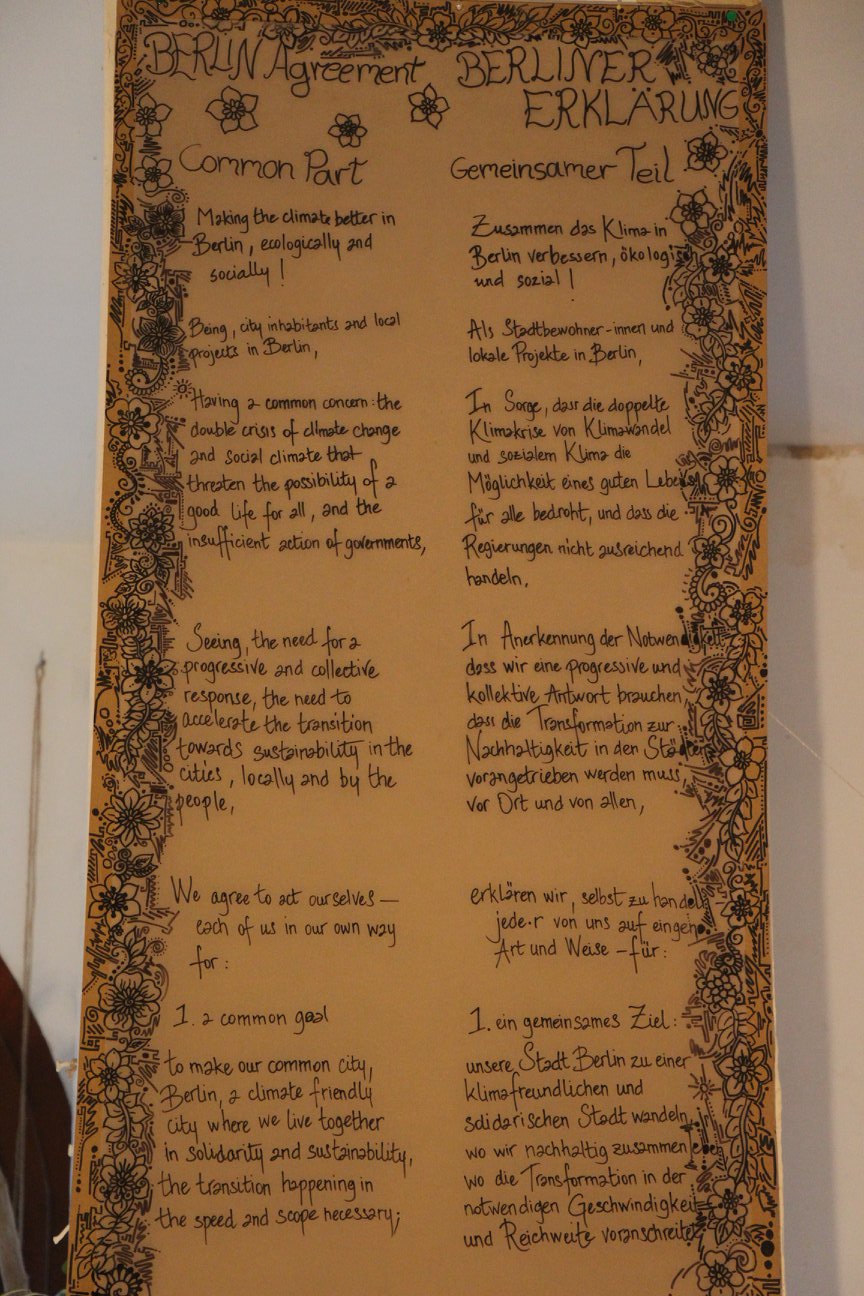 BERLIN Agreement
Common Part
Making the climate better in
Berlin, ecologically and
socially!
Being, city inhabitants and local
projects in Berlin,
Having a common concern: the
double crisis of climate change
and social climate that
threaten the possibility of a
good life for all, and the
insufficient action of governments,
Seeing, the need for a
progressive and collective
response, the need to
accelerate the transition
towards sustainability in the
cities, locally and by the
people,
We agree to act ourselves —
each of us in our own way
for:
1. a common goal
to make our common city,
Berlin, a climate friendly
city where we live together
in solidarity and sustainability,
the transition happening in
the speed and scope necessary;
BERLINER
ERKLÄRUNG
Gemeinsamer Teil
Zusammen das Klima in
Berlin verbessern, ökologisch
und sozial!
Als Stadtbewohner-innen und
lokale Projekte in Berlin,
In Sorge, dass die doppelte
Klimakrise von Klimawandel
und sozialem Klima die
Möglichkeit eines guten Lebens
für alle bedroht, und dass die
Regierungen nicht ausreichend
handeln,
In Anerkennung der Notwendigkeit
dass wir eine progressive und
kollektive Antwort brauchen,
dass die Transformation zur
Nachhaltigkeit in den Städten
vorangetrieben werden muss,
vor Ort und von allen,
erklären wir, selbst zu handeln
jede·r von uns auf eingene
Art und Weise – für:
1. ein gemeinsames Ziel:
unsere Stadt Berlin zu einer
klimafreundlichen und
solidarischen Stadt wandeln,
wo wir nachhaltig zusammenleben
wo die Transformation in der
notwendigen Geschwindigkeit
und Reichweite voranschreitet